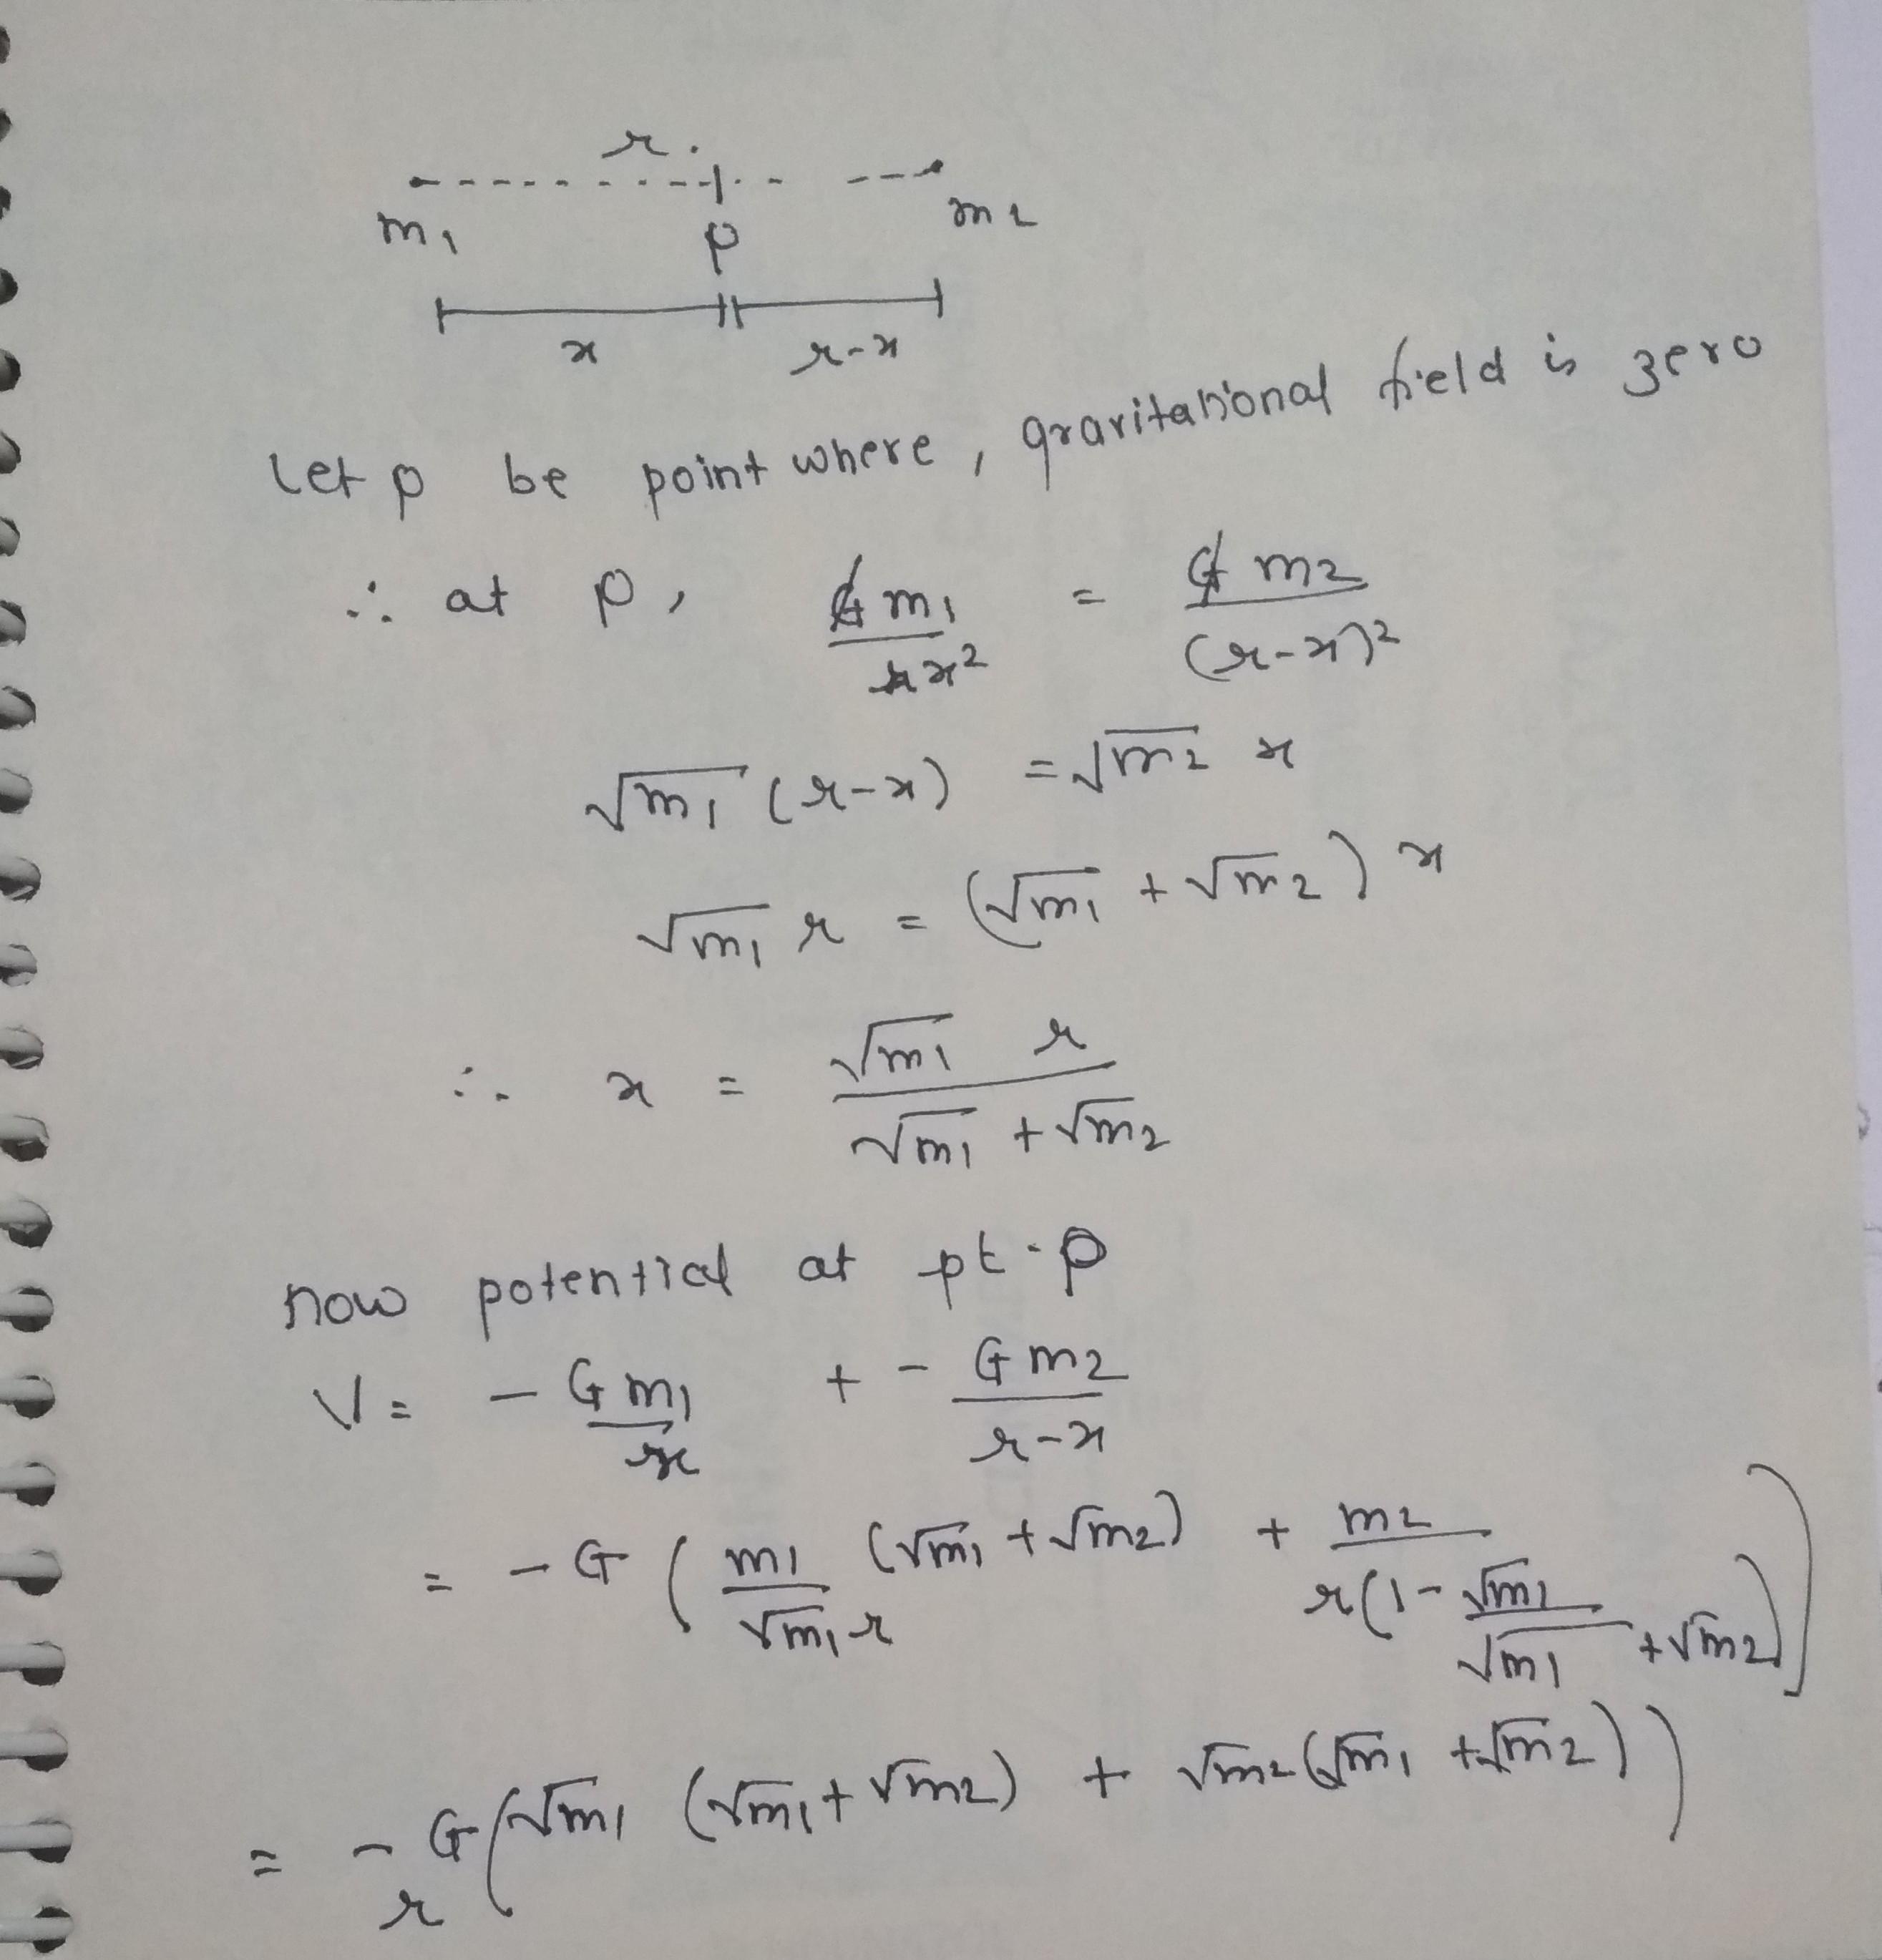 r.
m₁ P m₂
x r-x
Let p be point where, gravitational field is zero
∴ at P, Gm₁/x² = Gm₂/(r-x)²
√m₁ (r-x) = √m₂ x
√m₁ r = (√m₁ + √m₂) x
∴ x = √m₁ r / √m₁ + √m₂
now potential at pt-P
V = -Gm₁/x + -Gm₂/r-x
= -G (m₁/√m₁ r (√m₁ + √m₂) + m₂/r(1-√m₁/√m₁ + √m₂))
= -G/r (√m₁ (√m₁ + √m₂) + √m₂ (√m₁ + √m₂))